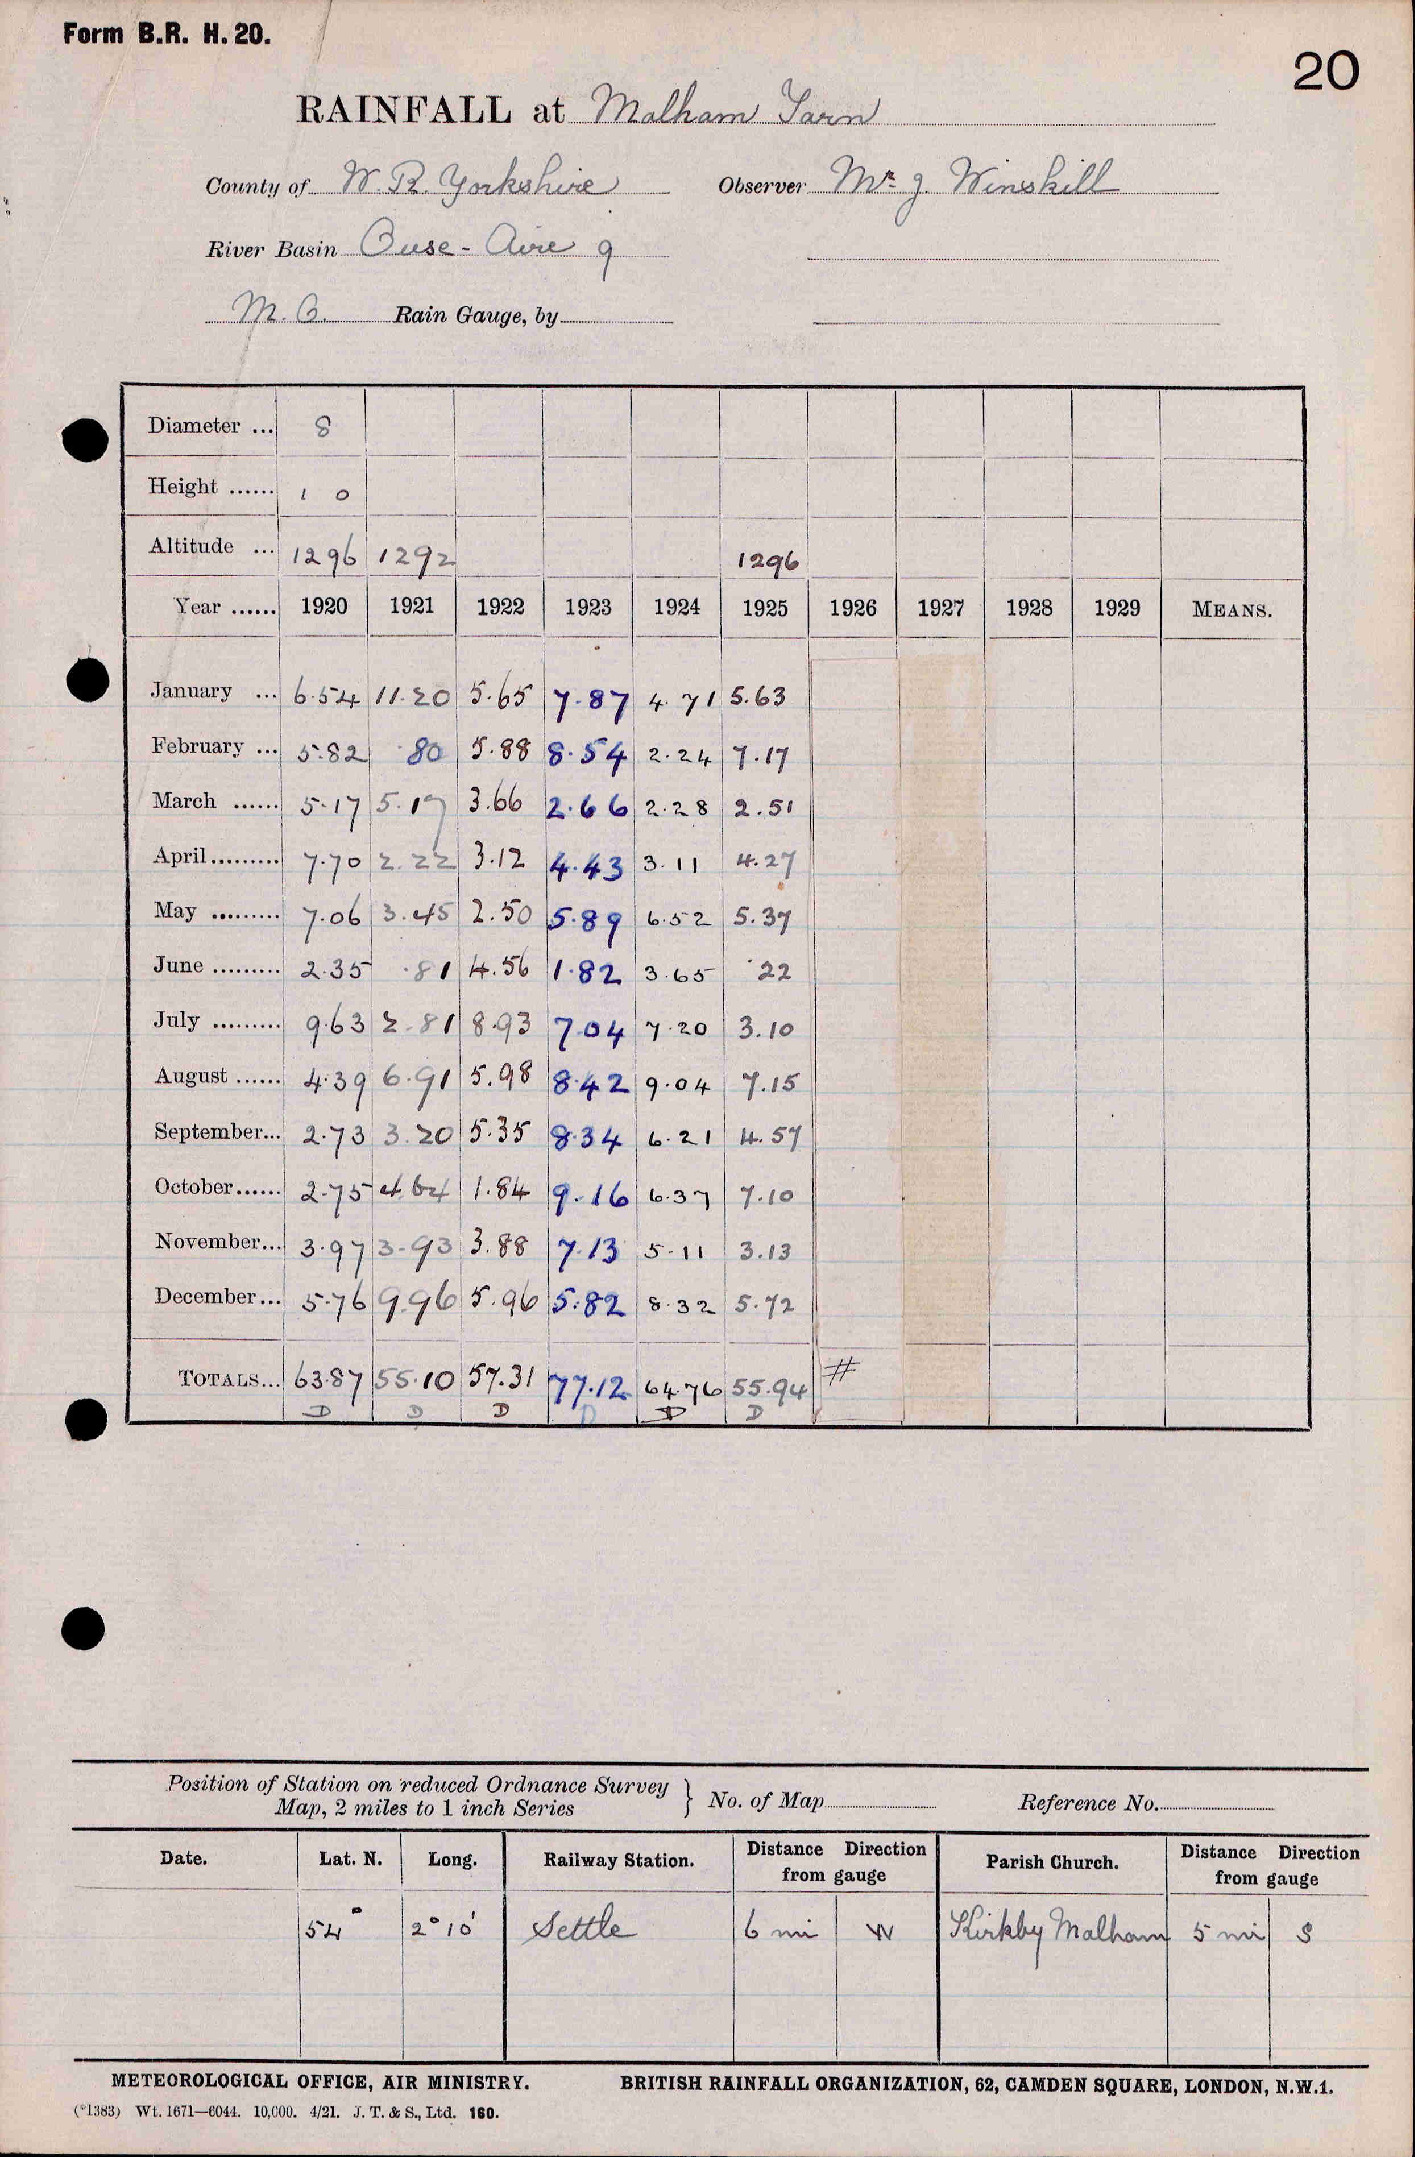 Form B.R. H. 20.
20
RAINFALL at Malham Tarn
County of W. R. Yorkshire Observer Mr. J. Winskill
River Basin Ouse - Aire 9
M. O. Rain Gauge, by
Diameter ... 8
Height ...... 1 0
Altitude ... 1296 1292 1296
Year ...... 1920 1921 1922 1923 1924 1925 1926 1927 1928 1929 MEANS.
January ... 6.54 11.20 5.65 7.87 4.71 5.63
February ... 5.82 .80 5.88 8.54 2.24 7.17
March ...... 5.17 5.17 3.66 2.66 2.28 2.51
April......... 7.70 2.22 3.12 4.43 3.11 4.27
May ......... 7.06 3.45 2.50 5.89 6.52 5.37
June ......... 2.35 .81 4.56 1.82 3.65 .22
July ......... 9.63 2.81 8.93 7.04 7.20 3.10
August ...... 4.39 6.91 5.98 8.42 9.04 7.15
September... 2.73 3.20 5.35 8.34 6.21 4.57
October...... 2.75 4.64 1.84 9.16 6.37 7.10
November... 3.97 3.93 3.88 7.13 5.11 3.13
December... 5.76 9.96 5.96 5.82 8.32 5.72
TOTALS... 63.87 55.10 57.31 77.12 64.76 55.94 #
D D D D D D
Position of Station on reduced Ordnance Survey
Map, 2 miles to 1 inch Series } No. of Map Reference No.
Date. Lat. N. Long. Railway Station. Distance Direction from gauge Parish Church. Distance Direction from gauge
54° 2° 10' Settle 6 mi W Kirkby Malham 5 mi S
METEOROLOGICAL OFFICE, AIR MINISTRY. BRITISH RAINFALL ORGANIZATION, 62, CAMDEN SQUARE, LONDON, N.W.1.
(*1383) Wt. 1671—6044. 10,000. 4/21. J. T. & S., Ltd. 160.